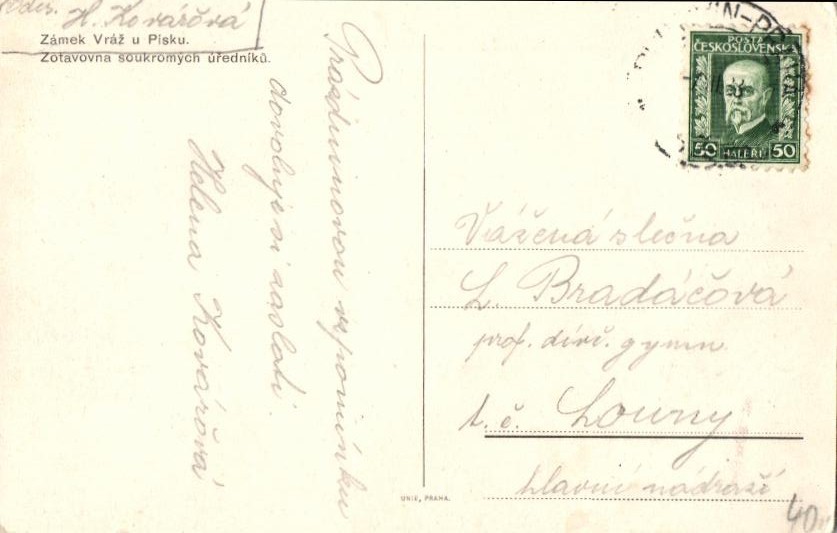 Odes. H. Kovářová
Zámek Vráž u Písku.
Zotavovna soukromých úředníků.
Prázdninovou vzpomínku
dovoluje si zaslati
Helena Kovářová
POSTA
ČESKOSLOVENSK
50 HALÉŘŮ 50
Vážená slečna
L. Bradáčová
prof. dívč. gymn.
t. č. Louny
hlavní nádraží
UNIE, PRAHA.
40